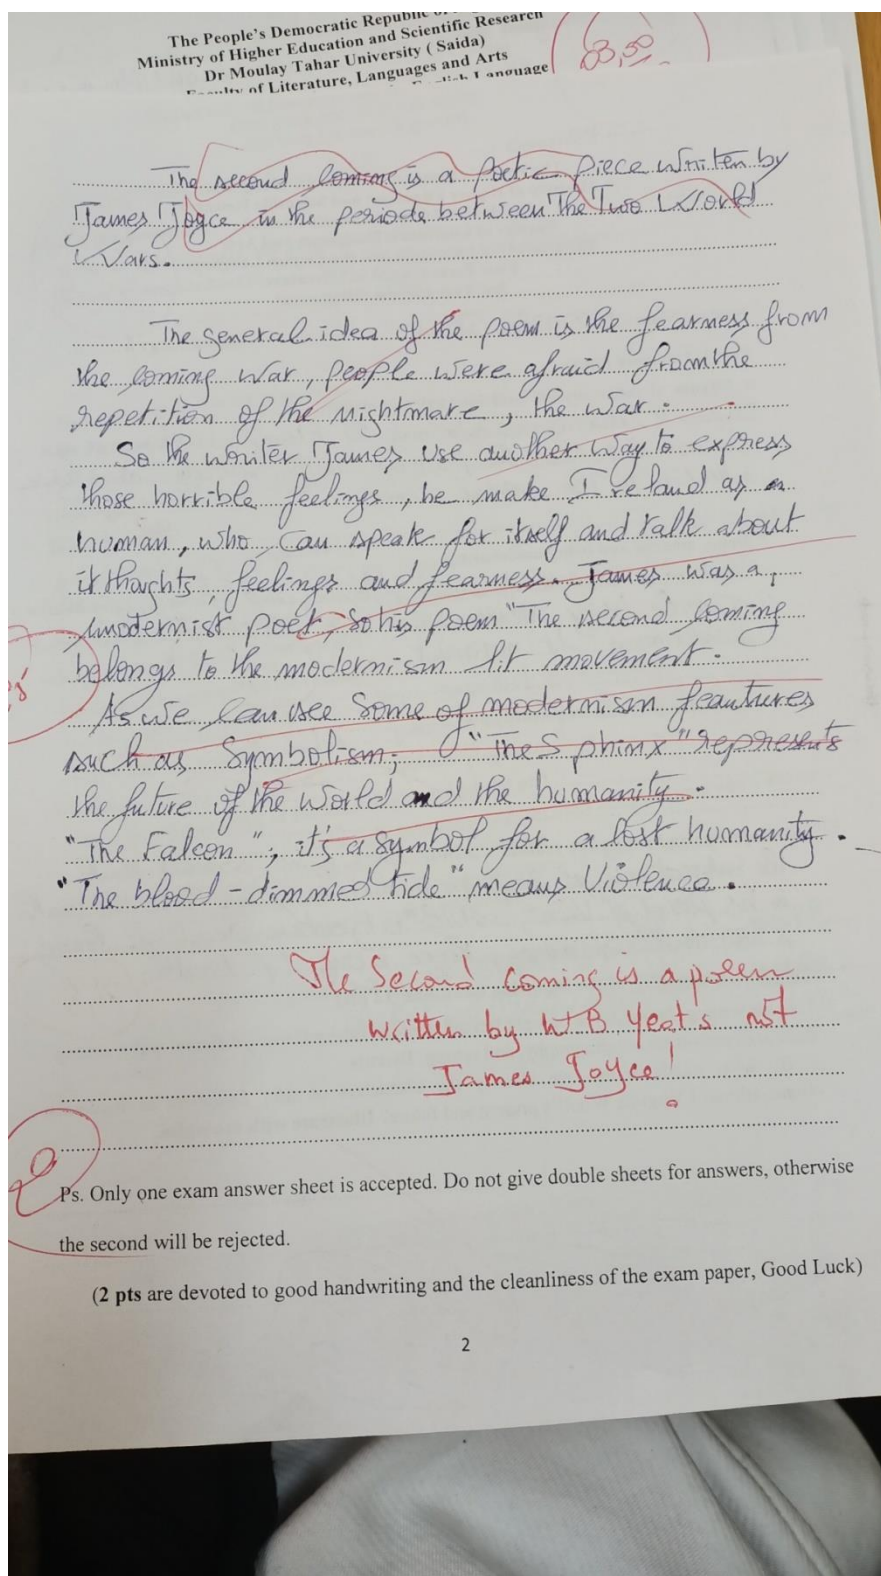 The People's Democratic Republic
Ministry of Higher Education and Scientific Research
Dr Moulay Tahar University ( Saida)
Faculty of Literature, Languages and Arts
English Language
03,50
The second coming is a Poetic piece written by
James Joyce in the periode between The Two World
Wars.
The general idea of the poem is the fearness from
the coming war, people were afraid from the
repetition of the nightmare, the war.
So the writer James use another way to express
those horrible feelings, he make Ireland as a
human, who can speak for itself and talk about
it thoughts, feelings and fearness. James was a
modernist poet, so his poem "The second coming
belongs to the modernism lit movement.
As we can see some of modernism feautures
such as Symbolism; "The Sphinx" represents
the future of the world and the humanity.
"The Falcon"; it's a symbol for a lost humanity.
"The blood-dimmed tide" means Violence.
The Second coming is a poem
written by W B Yeat's not
James Joyce!
Ps. Only one exam answer sheet is accepted. Do not give double sheets for answers, otherwise
the second will be rejected.
(2 pts are devoted to good handwriting and the cleanliness of the exam paper, Good Luck)
2